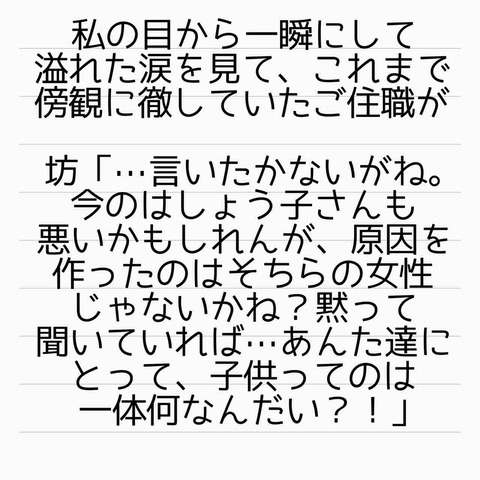 私の目から一瞬にして
溢れた涙を見て、これまで
傍観に徹していたご住職が
坊「…言いたかないがね。
今のはしょう子さんも
悪いかもしれんが、原因を
作ったのはそちらの女性
じゃないかね？黙って
聞いていれば…あんた達に
とって、子供ってのは
一体何なんだい？！」